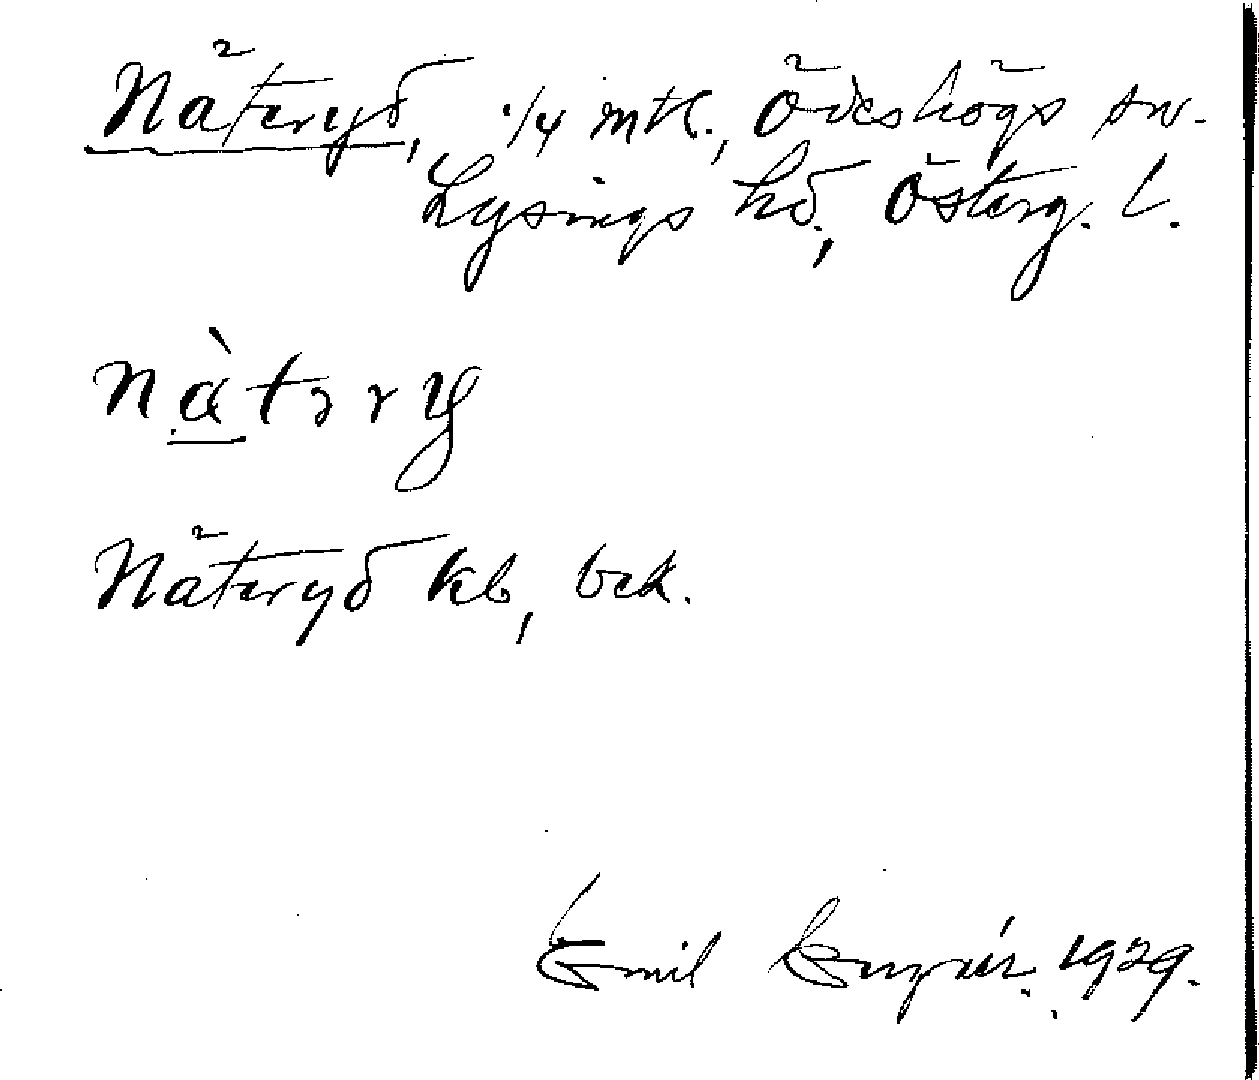 Näteryd, 1/4 mtl., Ödeshögs sn.
Lysings hd., Österg. l.
nàtəry
Näteryd kb, bek.
Emil 1929.